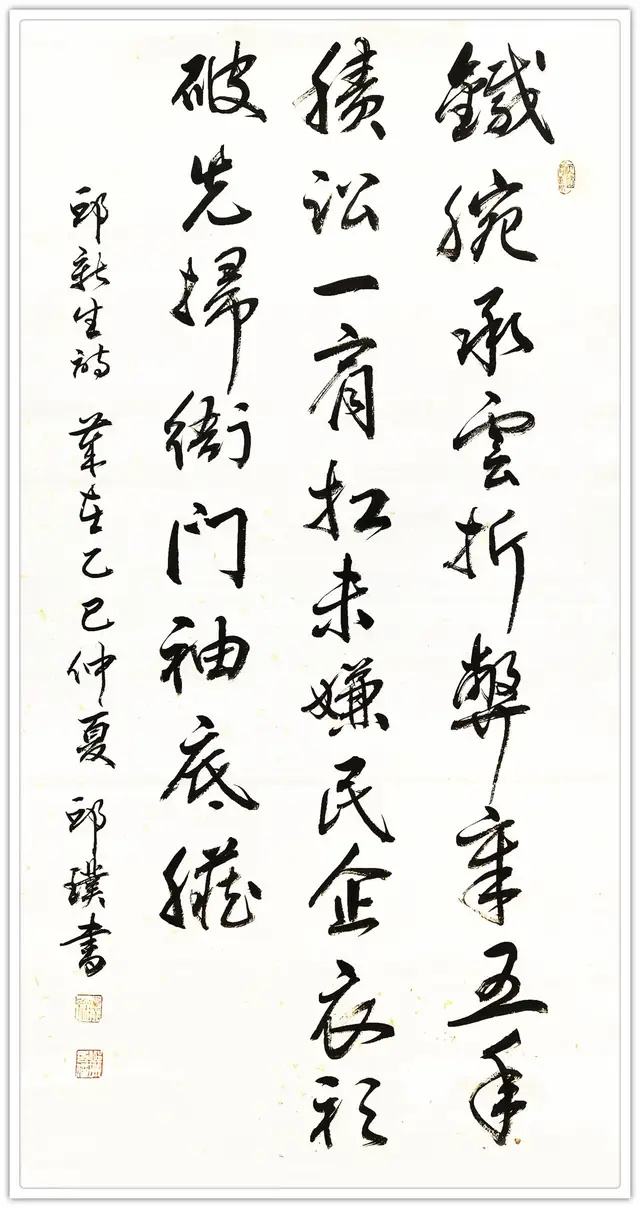 鐵腕承雲折弊章五年
積訟一肩扛未嫌民企衣衫
破先掃衙門袖底臟
邱新生詩 歲在乙巳仲夏 邱璞書